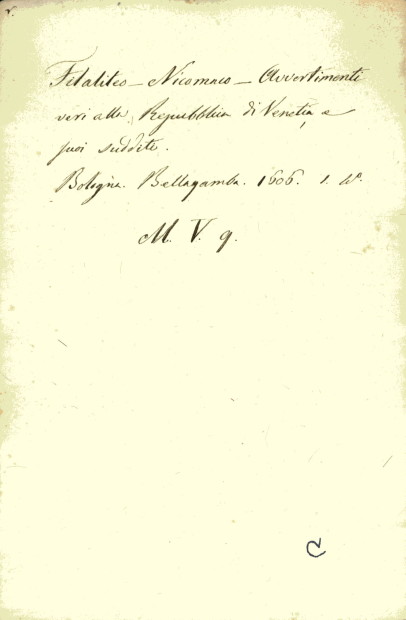 Filaliteo – Nicomaco – Avvertimenti
veri alla Repubblica di Venetia, e
suoi sudditi.
Bologna. Bellagamba. 1606. 1. 4º.
M. V. 9.
C